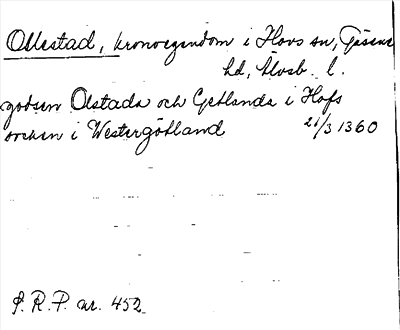 Ollestad, kronoegendom i Hovs sn, Gäsene
hd, Älvsb. l.
godsen Olstada och Getlanda i Hofs
socken i Westergötland 21/3 1360
S. R. P. nr. 452